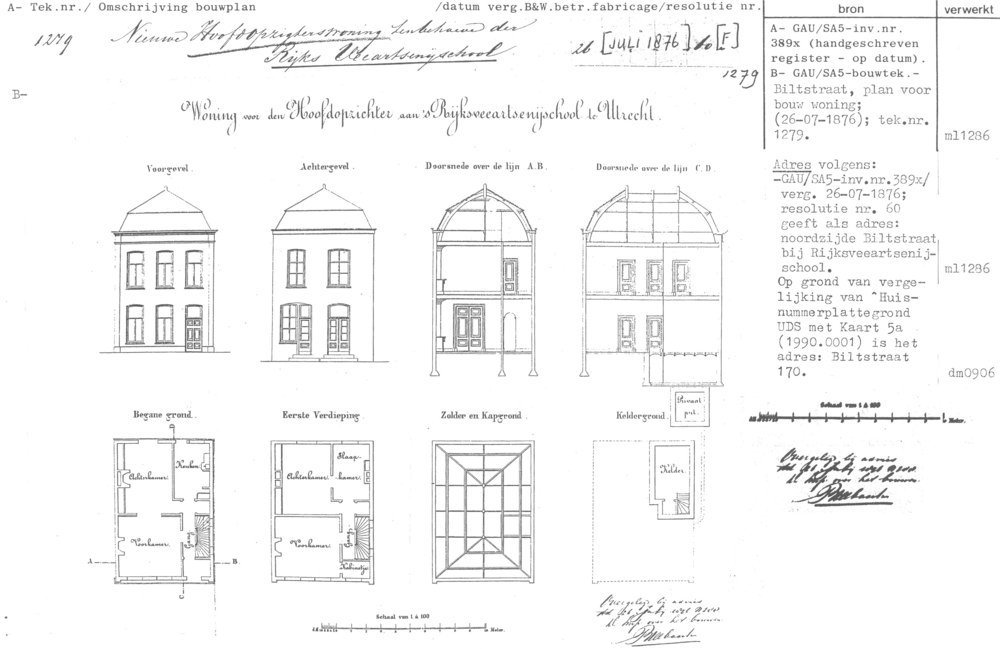 A- Tek.nr./ Omschrijving bouwplan /datum verg.B&W.betr.fabricage/resolutie nr.
1279 Nieuwe Hoofdopzichterswoning tenbehoeve der
Rijks Veeartsenijschool
26 [JULI 1876] 60 [F]
1279
B-
Woning voor den Hoofdopzichter aan 's Rijksveeartsenijschool te Utrecht.
Voorgevel. Achtergevel. Doorsnede over de lijn A.B. Doorsnede over de lijn C.D.
Privaat
put.
Begane grond. Eerste Verdieping. Zolder en Kapgrond. Keldergrond.
D
Keuken
Achterkamer.
Voorkamer.
Gang
A B
C
Slaap
kamer.
Achterkamer.
Voorkamer.
Gang
Kabinetje
Kelder.
Schaal van 1 à 100
Meter.
bron verwerkt
A- GAU/SA5-inv.nr.
389x (handgeschreven
register - op datum).
B- GAU/SA5-bouwtek.-
Biltstraat, plan voor
bouw woning;
(26-07-1876); tek.nr.
1279. ml1286
Adres volgens:
-GAU/SA5-inv.nr.389x/
verg. 26-07-1876;
resolutie nr. 60
geeft als adres:
noordzijde Biltstraat
bij Rijksveeartsenij-
school. ml1286
Op grond van verge-
lijking van ^Huis-
nummerplattegrond
UDS met Kaart 5a
(1990.0001) is het
adres: Biltstraat
170. dm0906
Schaal van 1 à 100
Meter.